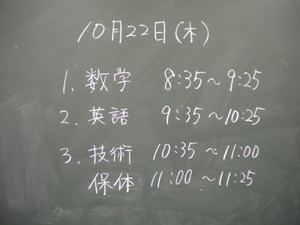 10月22日(木)
1. 数学 8:35〜9:25
2. 英語 9:35〜10:25
3. 技術 10:35〜11:00
保体 11:00〜11:25